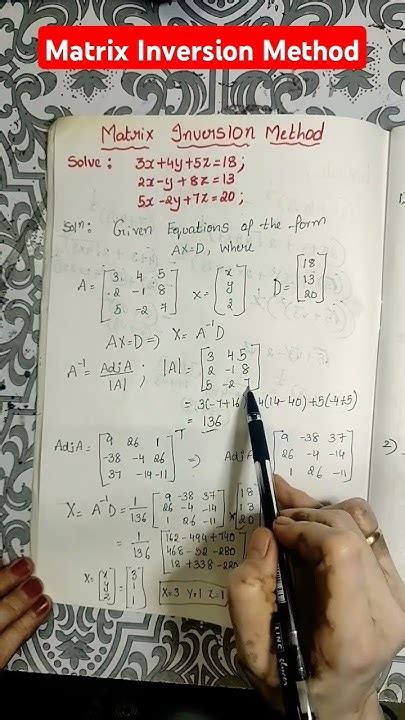 Matrix Inversion Method
Matrix Inversion Method
Solve : 3x+4y+5z=18;
2x-y+8z=13
5x-2y+7z=20;
Soln: Given Equations of the form
AX=D, where
A = [3 4 5
2 -1 8
5 -2 7] X = [x
y
z] ; D = [18
13
20]
AX=D => X = A⁻¹D
A⁻¹ = AdjA / |A| ; |A| = [3 4 5
2 -1 8
5 -2 7]
= 3(-7+16 4(14-40)+5(-4+5)
= 136
AdjA = [9 26 1
-38 -4 26
37 -14 -11]ᵀ => Adj [9 -38 37
26 -4 -14
1 26 -11]
2)
X = A⁻¹D = 1/136 [9 -38 37
26 -4 -14
1 26 -11] [18
13
20]
= 1/136 [162 -494 +740
468 -52 -280
18 +338 -220]
X = [x
y
z] = [3
1
1] X=3 Y=1 Z=1